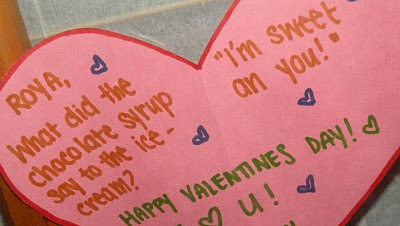 ROYA,
What did the
chocolate syrup
say to the ice-
cream?
"I'm sweet
an you!"
HAPPY VALENTINES DAY!
U!